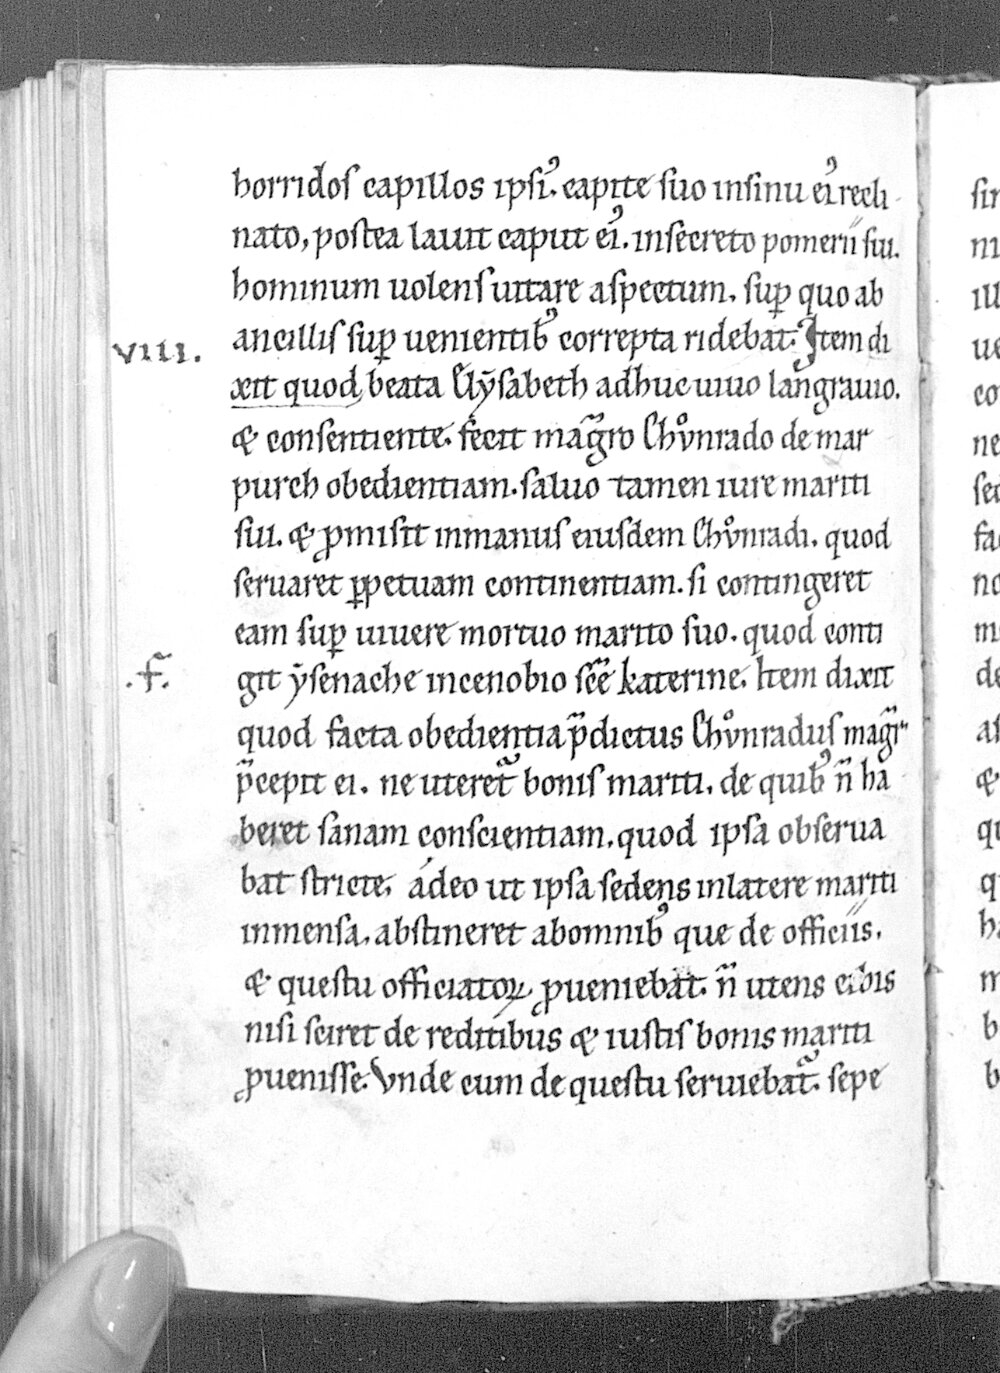 horridoſ capilloſ ipſiꝰ. capite ſuo inſinu eiꝰ recli
nato, poſtea lauit caput eiꝰ. inſecreto pomerii ſui.
hominum uolenſ uitare aſpectum. ſuꝑ quo ab
ancilliſ ſuꝑ uenientibꝰ correpta ridebat. Item di
VIII.
xit quod beata Elẏſabeth adhuc uiuo langrauio.
& conſentiente. fecit mag̃ro Chůnrado de mar
purch obedientiam. ſaluo tamen iure mariti
ſui. & ꝓmiſit inmanuſ eiuſdem Chůnradi. quod
ſeruaret ꝑpetuam continentiam. ſi contingeret
eam ſuꝑ uiuere mortuo marito ſuo. quod conti
.f̃.
git ẏſenache incenobio ſc̃e katerine. Item dixit
quod facta obedientia p̃dictuſ Chůnraduſ magr̃
p̃cepit ei. ne uteret̃ boniſ mariti. de quibꝰ ñ ha
beret ſanam conſcientiam. quod ipſa obſerua
bat ſtricte. adeo ut ipſa ſedenſ inlatere mariti
inmenſa. abſtineret abomnibꝰ que de officiiſ.
& queſtu officiatoꝝ ꝓueniebat. ñ utens cibis
niſi ſciret de reditibus & iuſtiſ bonis mariti
ꝓueniſſe. Vnde cum de queſtu ſeruiebat̃. ſepe